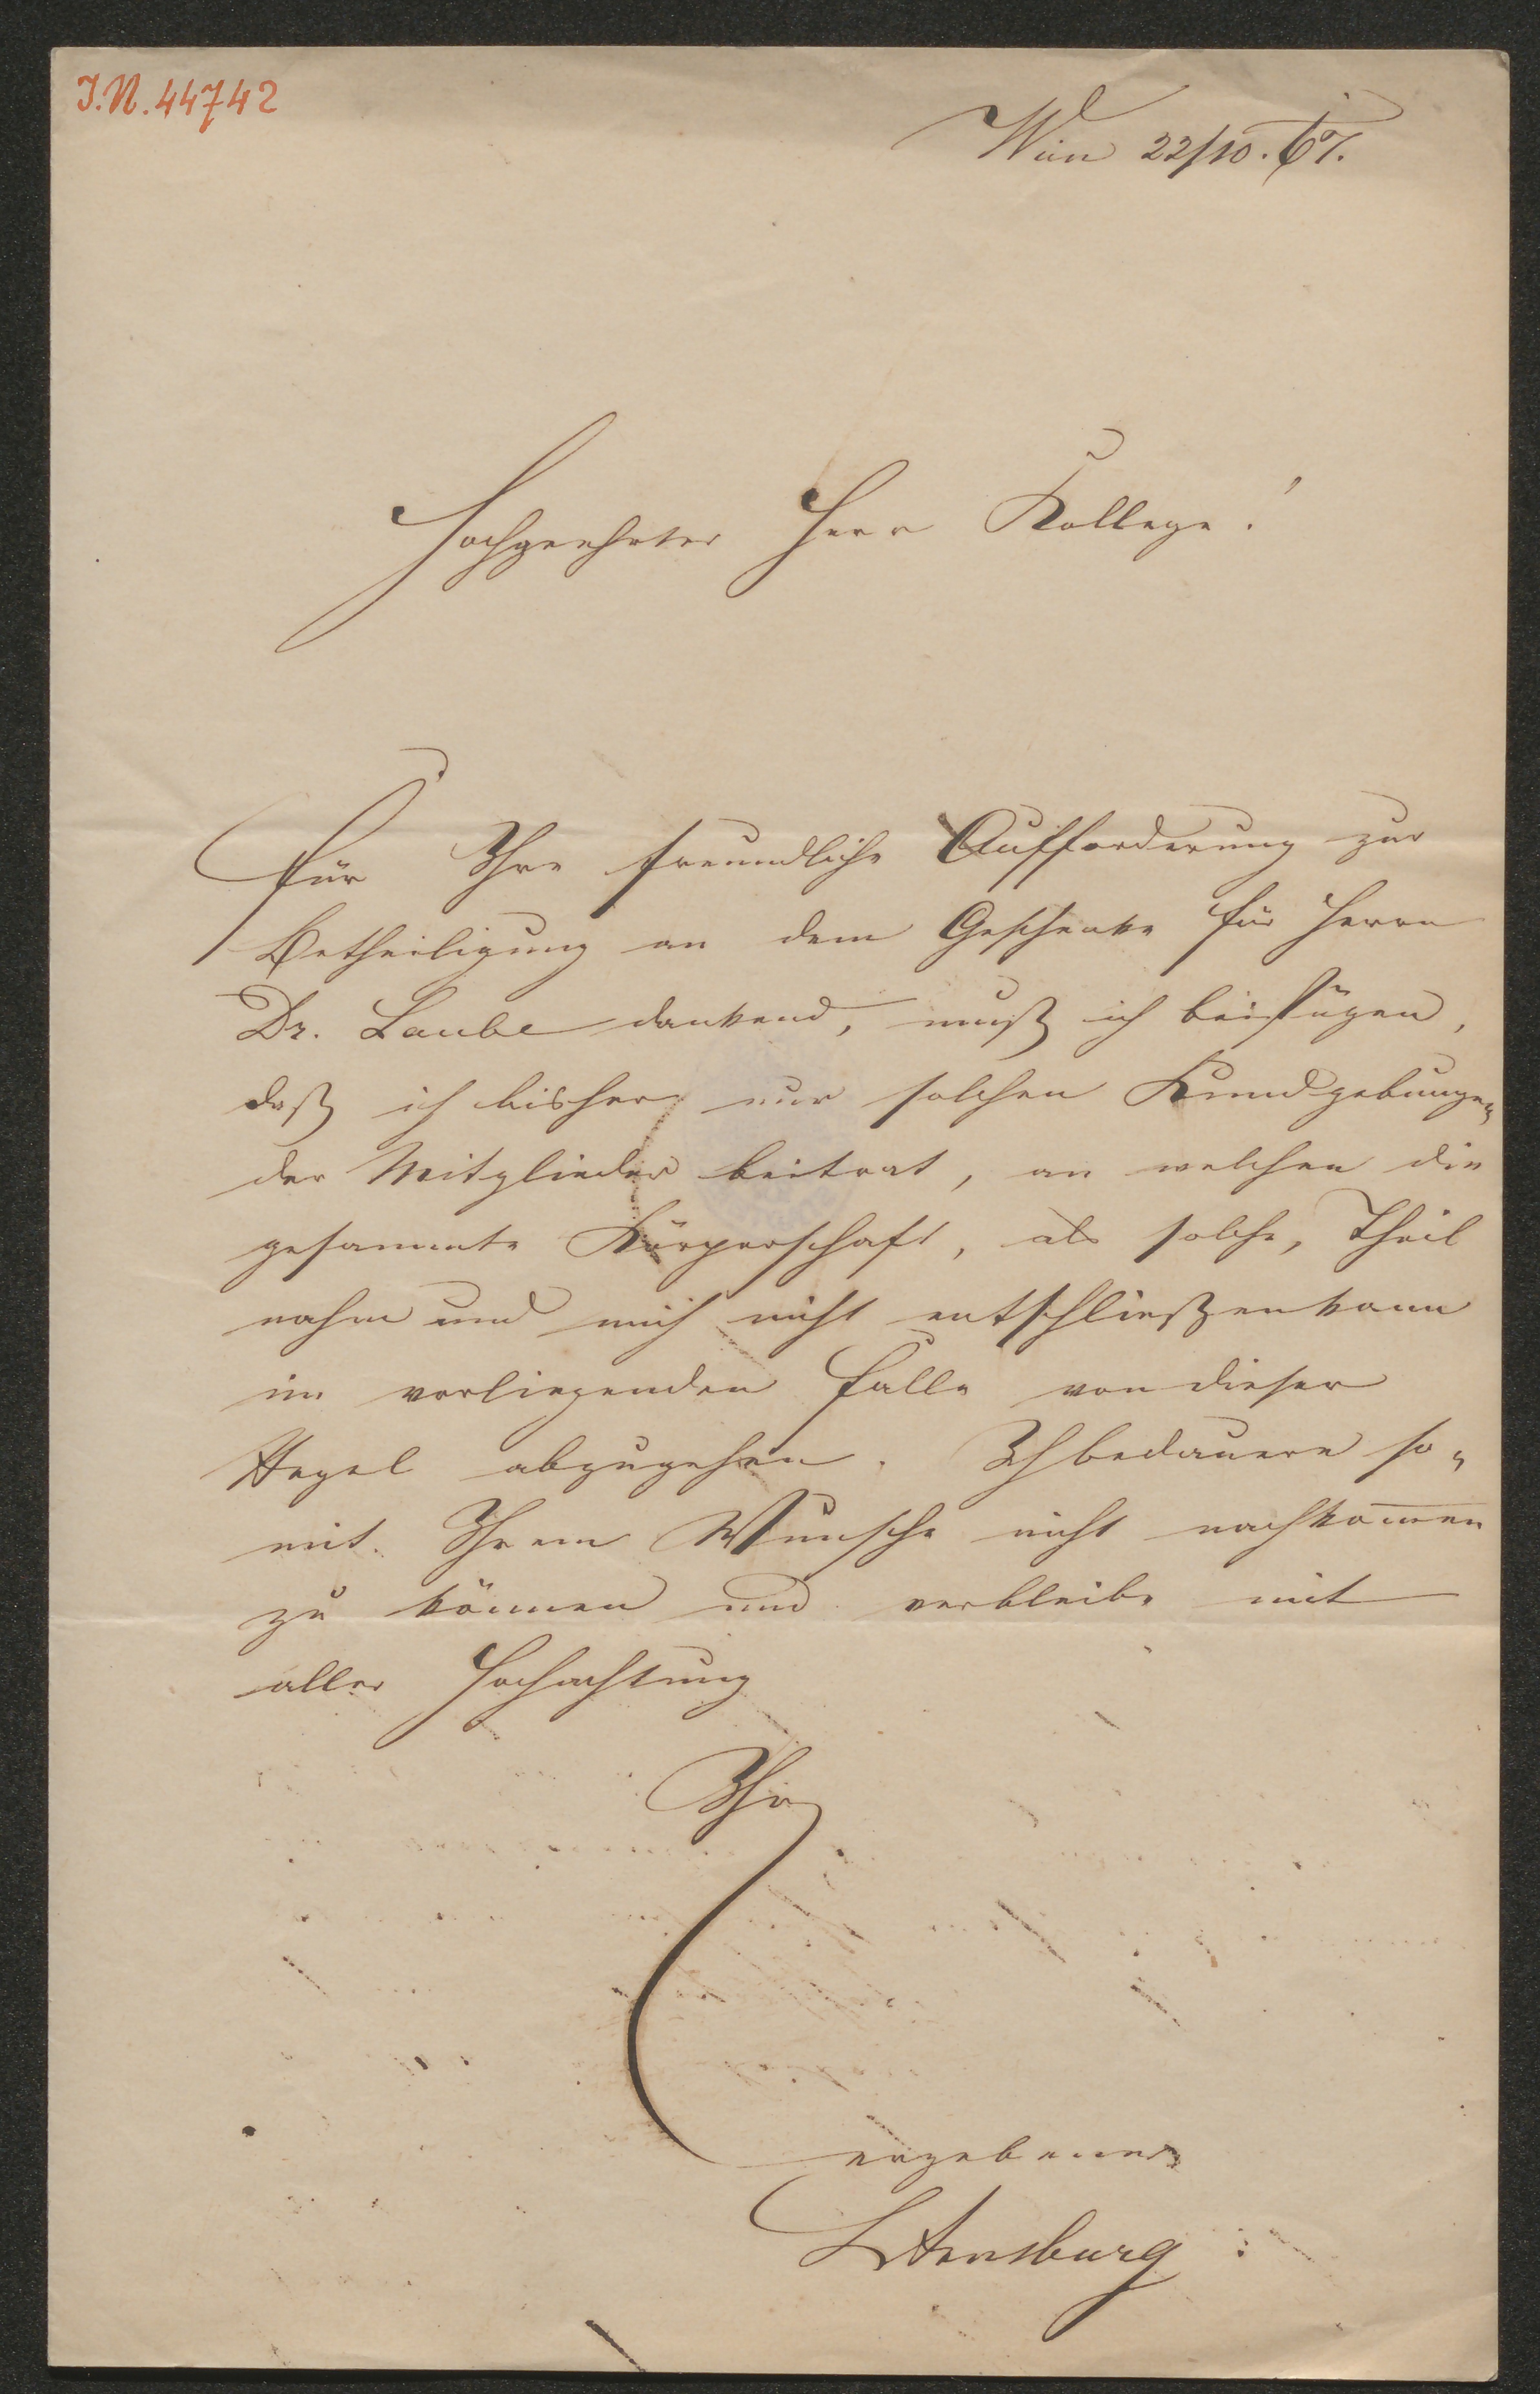 I.N. 44742
Wien 22/10. 67.
Hochgeehrter Herr Kollege!
Für Ihre freundliche Aufforderung zur
Betheiligung an dem Geschenke für Herrn
Dr. Laube dankend, muß ich beifügen,
daß ich bisher nur solchen Kundgebungen
der Mitglieder beitrat, an welchen die
gesammte Körperschaft, als solche, Theil
nahm und mich nicht entschließen kann
im vorliegenden Falle von dieser
Regel abzugehen. Ich bedauere so„
mit Ihrem Wunsche nicht nachkom̄en
zu können und verbleibe mit
aller Hochachtung
Ihr
ergebener
LArnsburg